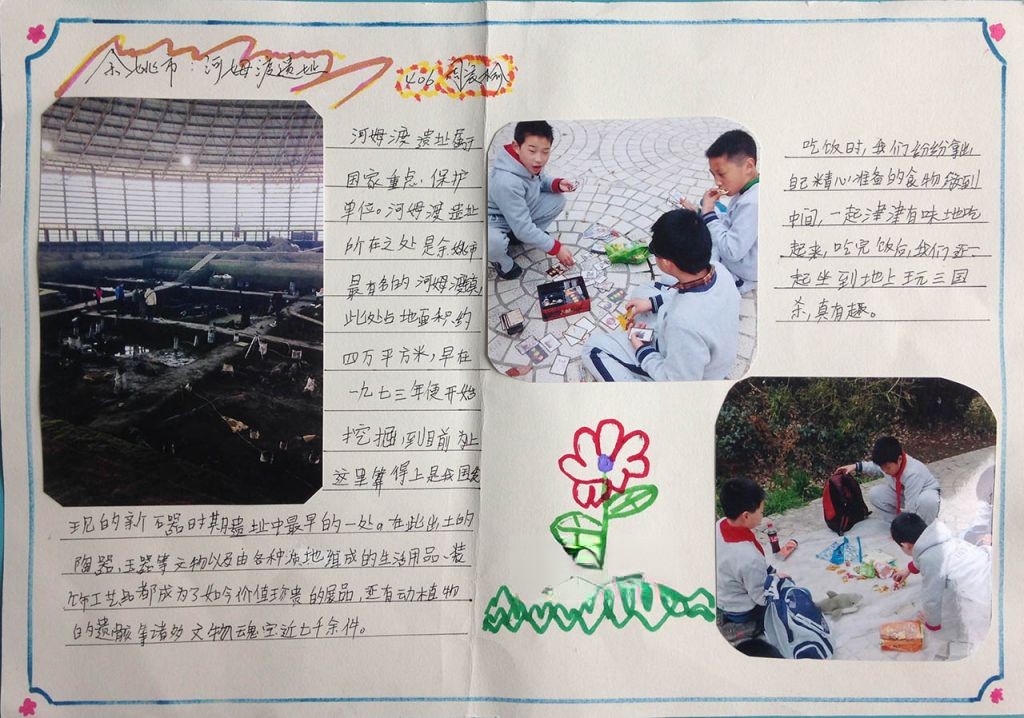 余姚市:河姆渡遗址
406
河姆渡遗址属于
国家重点保护
单位。河姆渡遗址
所在之处是余姚市
最有名的河姆渡镇,
此处占地面积约
四万平方米,早在
一九七三年便开始
挖掘,到目前为止
这里算得上是我国发
现的新石器时期遗址中最早的一处。在此出土的
陶器、玉器等文物以及由各种质地组成的生活用品、装
饰工艺品都成为了如今价值珍贵的展品,还有动植物
的遗骸等诸多文物瑰宝近七千余件。
吃饭时,我们纷纷拿出
自己精心准备的食物放到
中间,一起津津有味地吃
起来,吃完饭后,我们还一
起坐到地上玩三国
杀,真有趣。